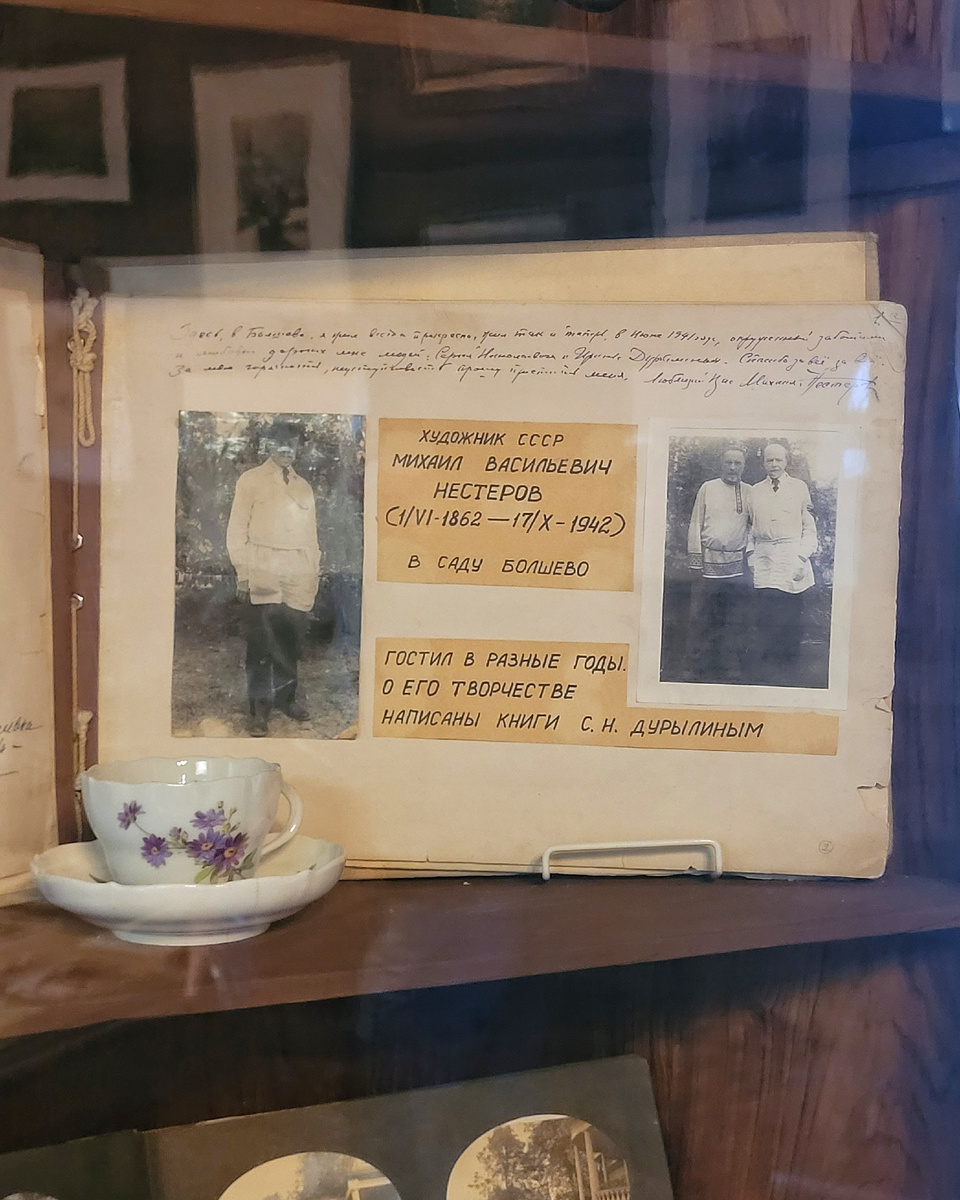 Здесь, в Болшеве, я жил всегда прекрасно, жил так и теперь, в Июне 1941 года, окруженный заботами
и любовью дорогих мне людей: Сергея Николаевича и Ирины Спасибо за всё за
За мою прошу простить меня. Любящий Вас Михаил Нестеров
ХУДОЖНИК СССР
МИХАИЛ ВАСИЛЬЕВИЧ
НЕСТЕРОВ
(1/VI-1862 — 17/X-1942)
В САДУ БОЛШЕВО
ГОСТИЛ В РАЗНЫЕ ГОДЫ.
О ЕГО ТВОРЧЕСТВЕ
НАПИСАНЫ КНИГИ С.Н. ДУРЫЛИНЫМ